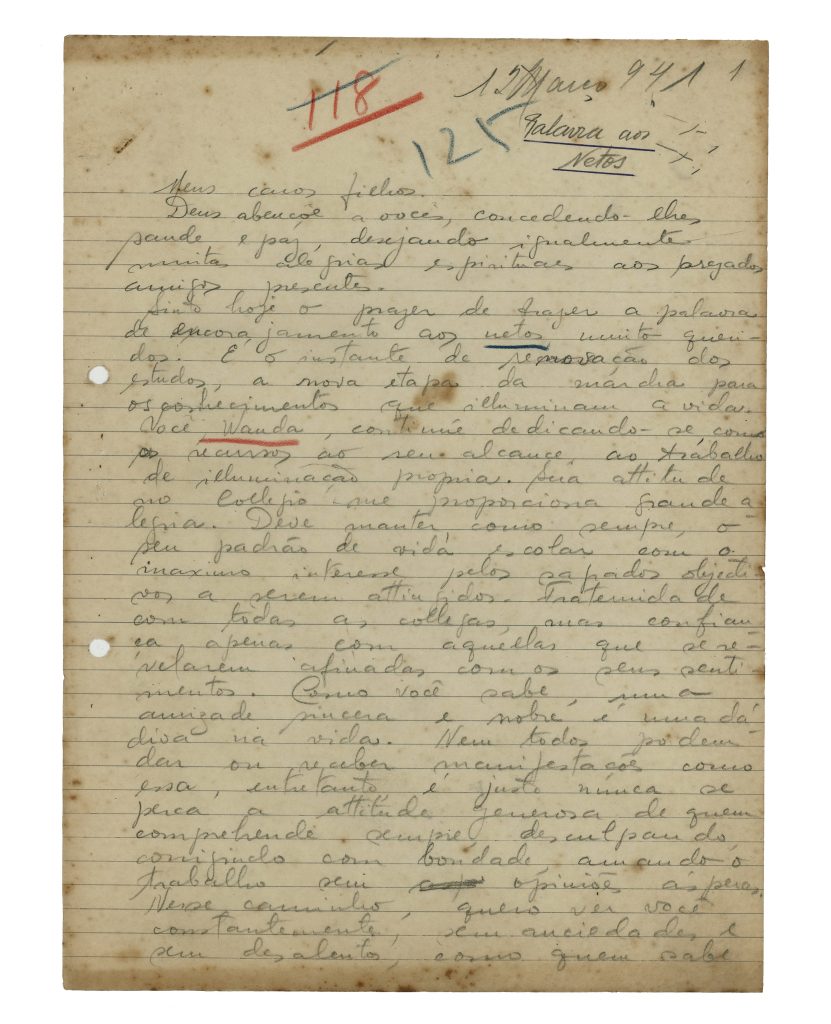 118
12 Março 941 1
125
Palavra aos
Netos
Meus caros filhos.
Deus abençõe a vocês, concedendo-lhes
saude e paz, desejando igualmente
muitas alegrias espirituaes aos prezados
amigos presentes.
Sinto hoje o prazer de trazer a palavra
de encorajamento aos netos muito queri-
dos. É o instante de renovação dos
estudos, a nova etapa da marcha para
os conhecimentos que illuminam a vida.
Você, Wanda, continúe dedicando-se, com
os recursos ao seu alcance, ao trabalho
de illuminação propria. Sua attitude
no Collegio me proporciona grande a
legria. Deve manter, como sempre, o
seu padrão de vida escolar com o
maximo interesse pelos sagrados objecti-
vos a serem attingidos. Fraternidade
com todas as collegas, mas confian
ça apenas com aquellas que se re-
velarem afinadas com os seus senti-
mentos. Como você sabe, uma
amizade sincera e nobre é uma dá
diva na vida. Nem todos podem
dar ou receber manifestações como
essa, entretanto, é justo nunca se
perca a attitude generosa de quem
comprehende sempre desculpando,
corrigindo com bondade, amando o
trabalho sem opiniões ásperas.
Nesse caminho, quero ver você
constantemente, sem anciedades e
sem desalentos, como quem sabe